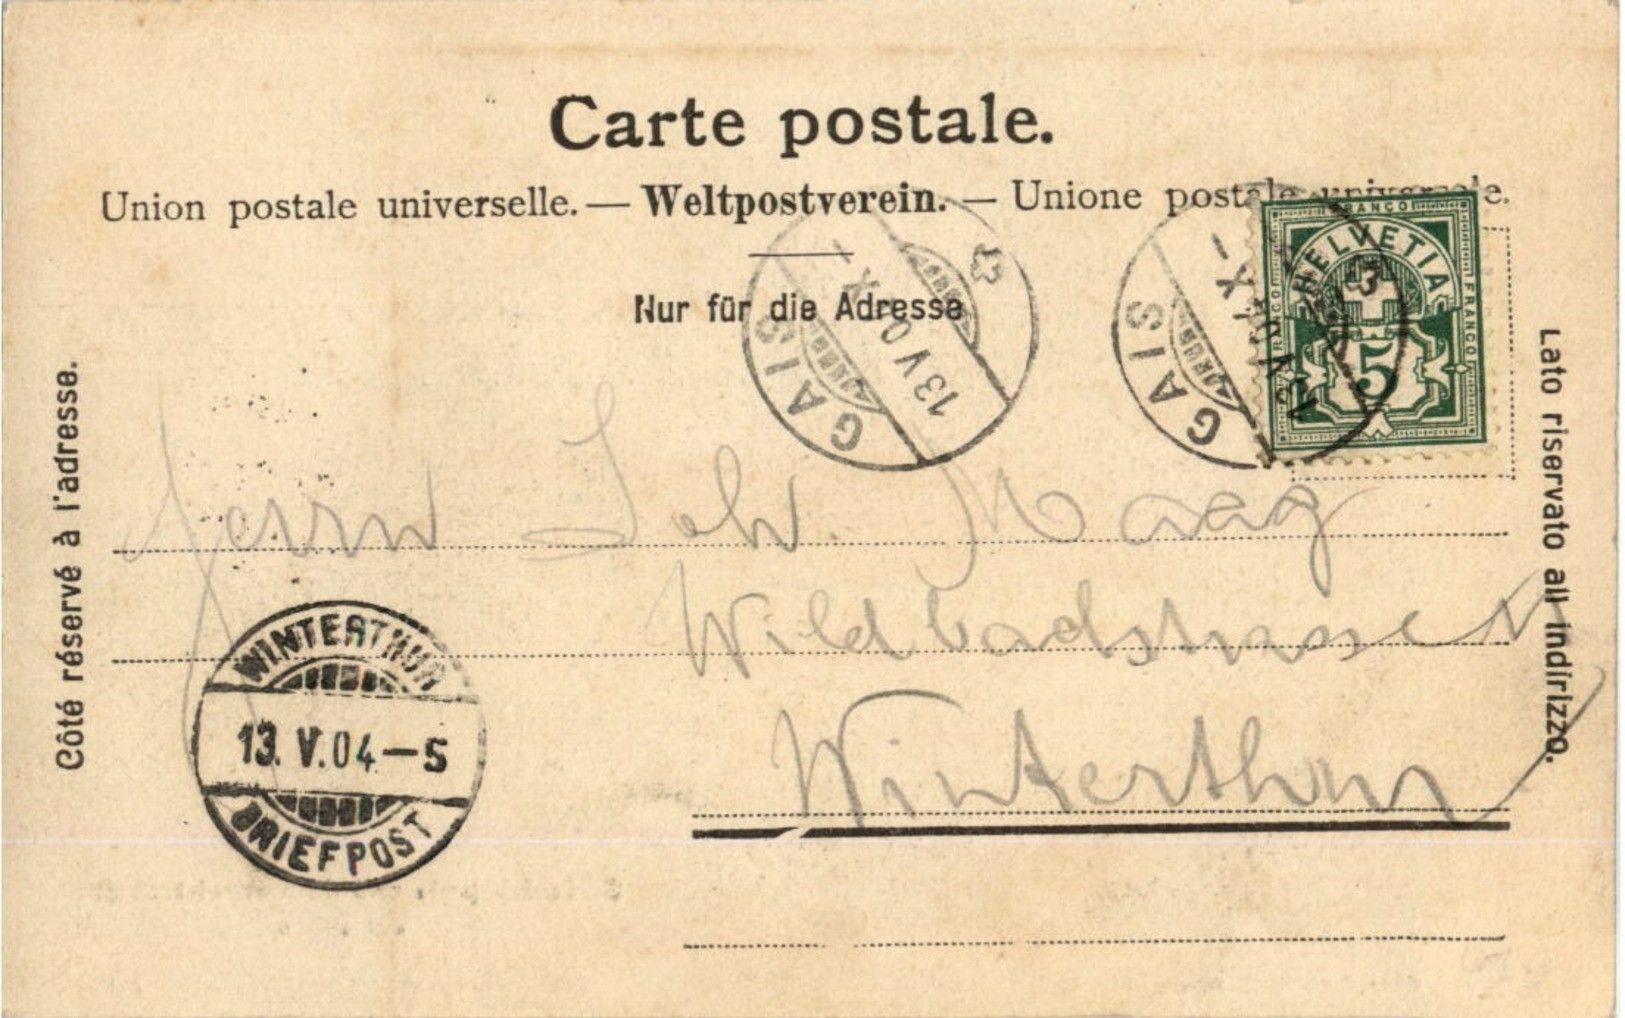 Carte postale.
Union postale universelle. — Weltpostverein. — Unione postale universale.
Nur für die Adresse
Côté réservé à l'adresse.
Lato riservato all indirizzo.
GAIS
13 V 04 X -
GAIS
13 V 04 X -
FRANCO
FRANCO
FRANCO
HELVETIA
5
Herrn Joh. Maag
Wildbadstrasse
Winterthur
WINTERTHUR
13. V. 04 — 5
BRIEFPOST